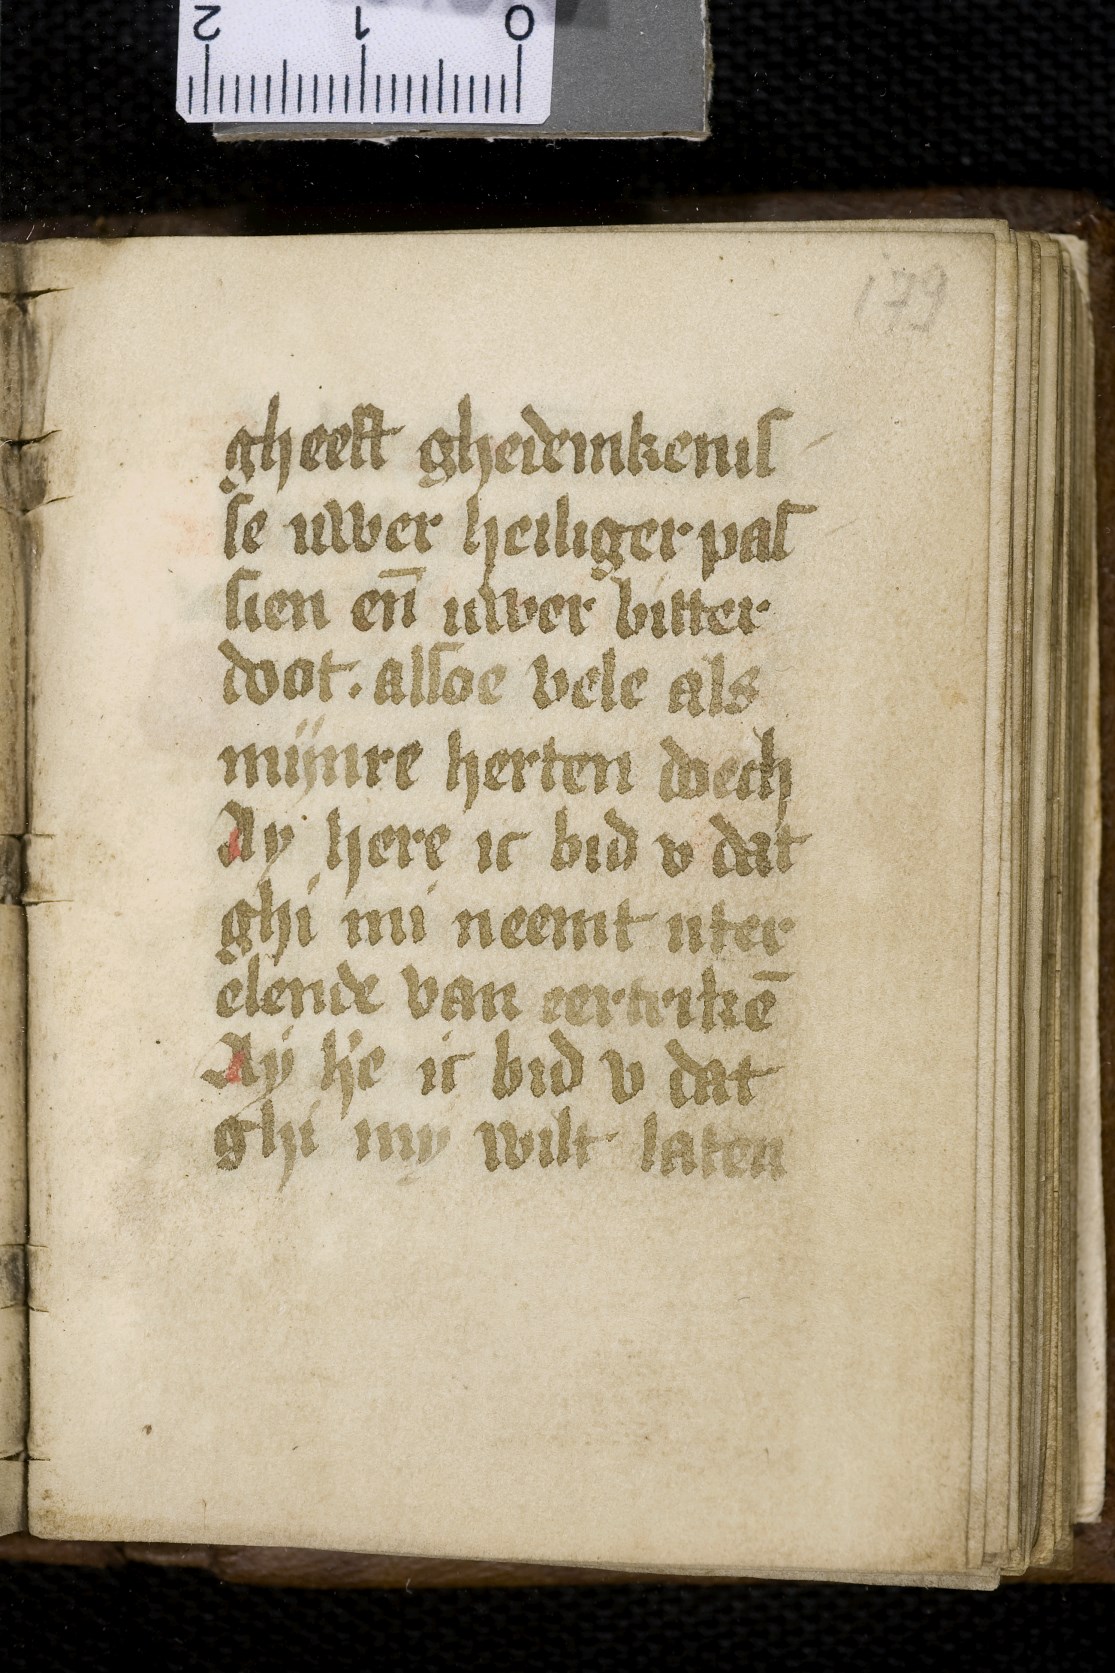 2 1 0
179
gheeft ghedeinkenis
se uwer heiliger pas
sien en̄ uwer bitter
doot. alsoe vele als
mijnre herten doech
Ay here ic bid v dat
ghi mi neemt uter
elende van eertrikē
Aÿ h'e ic bid v dat
ghi my wilt laten